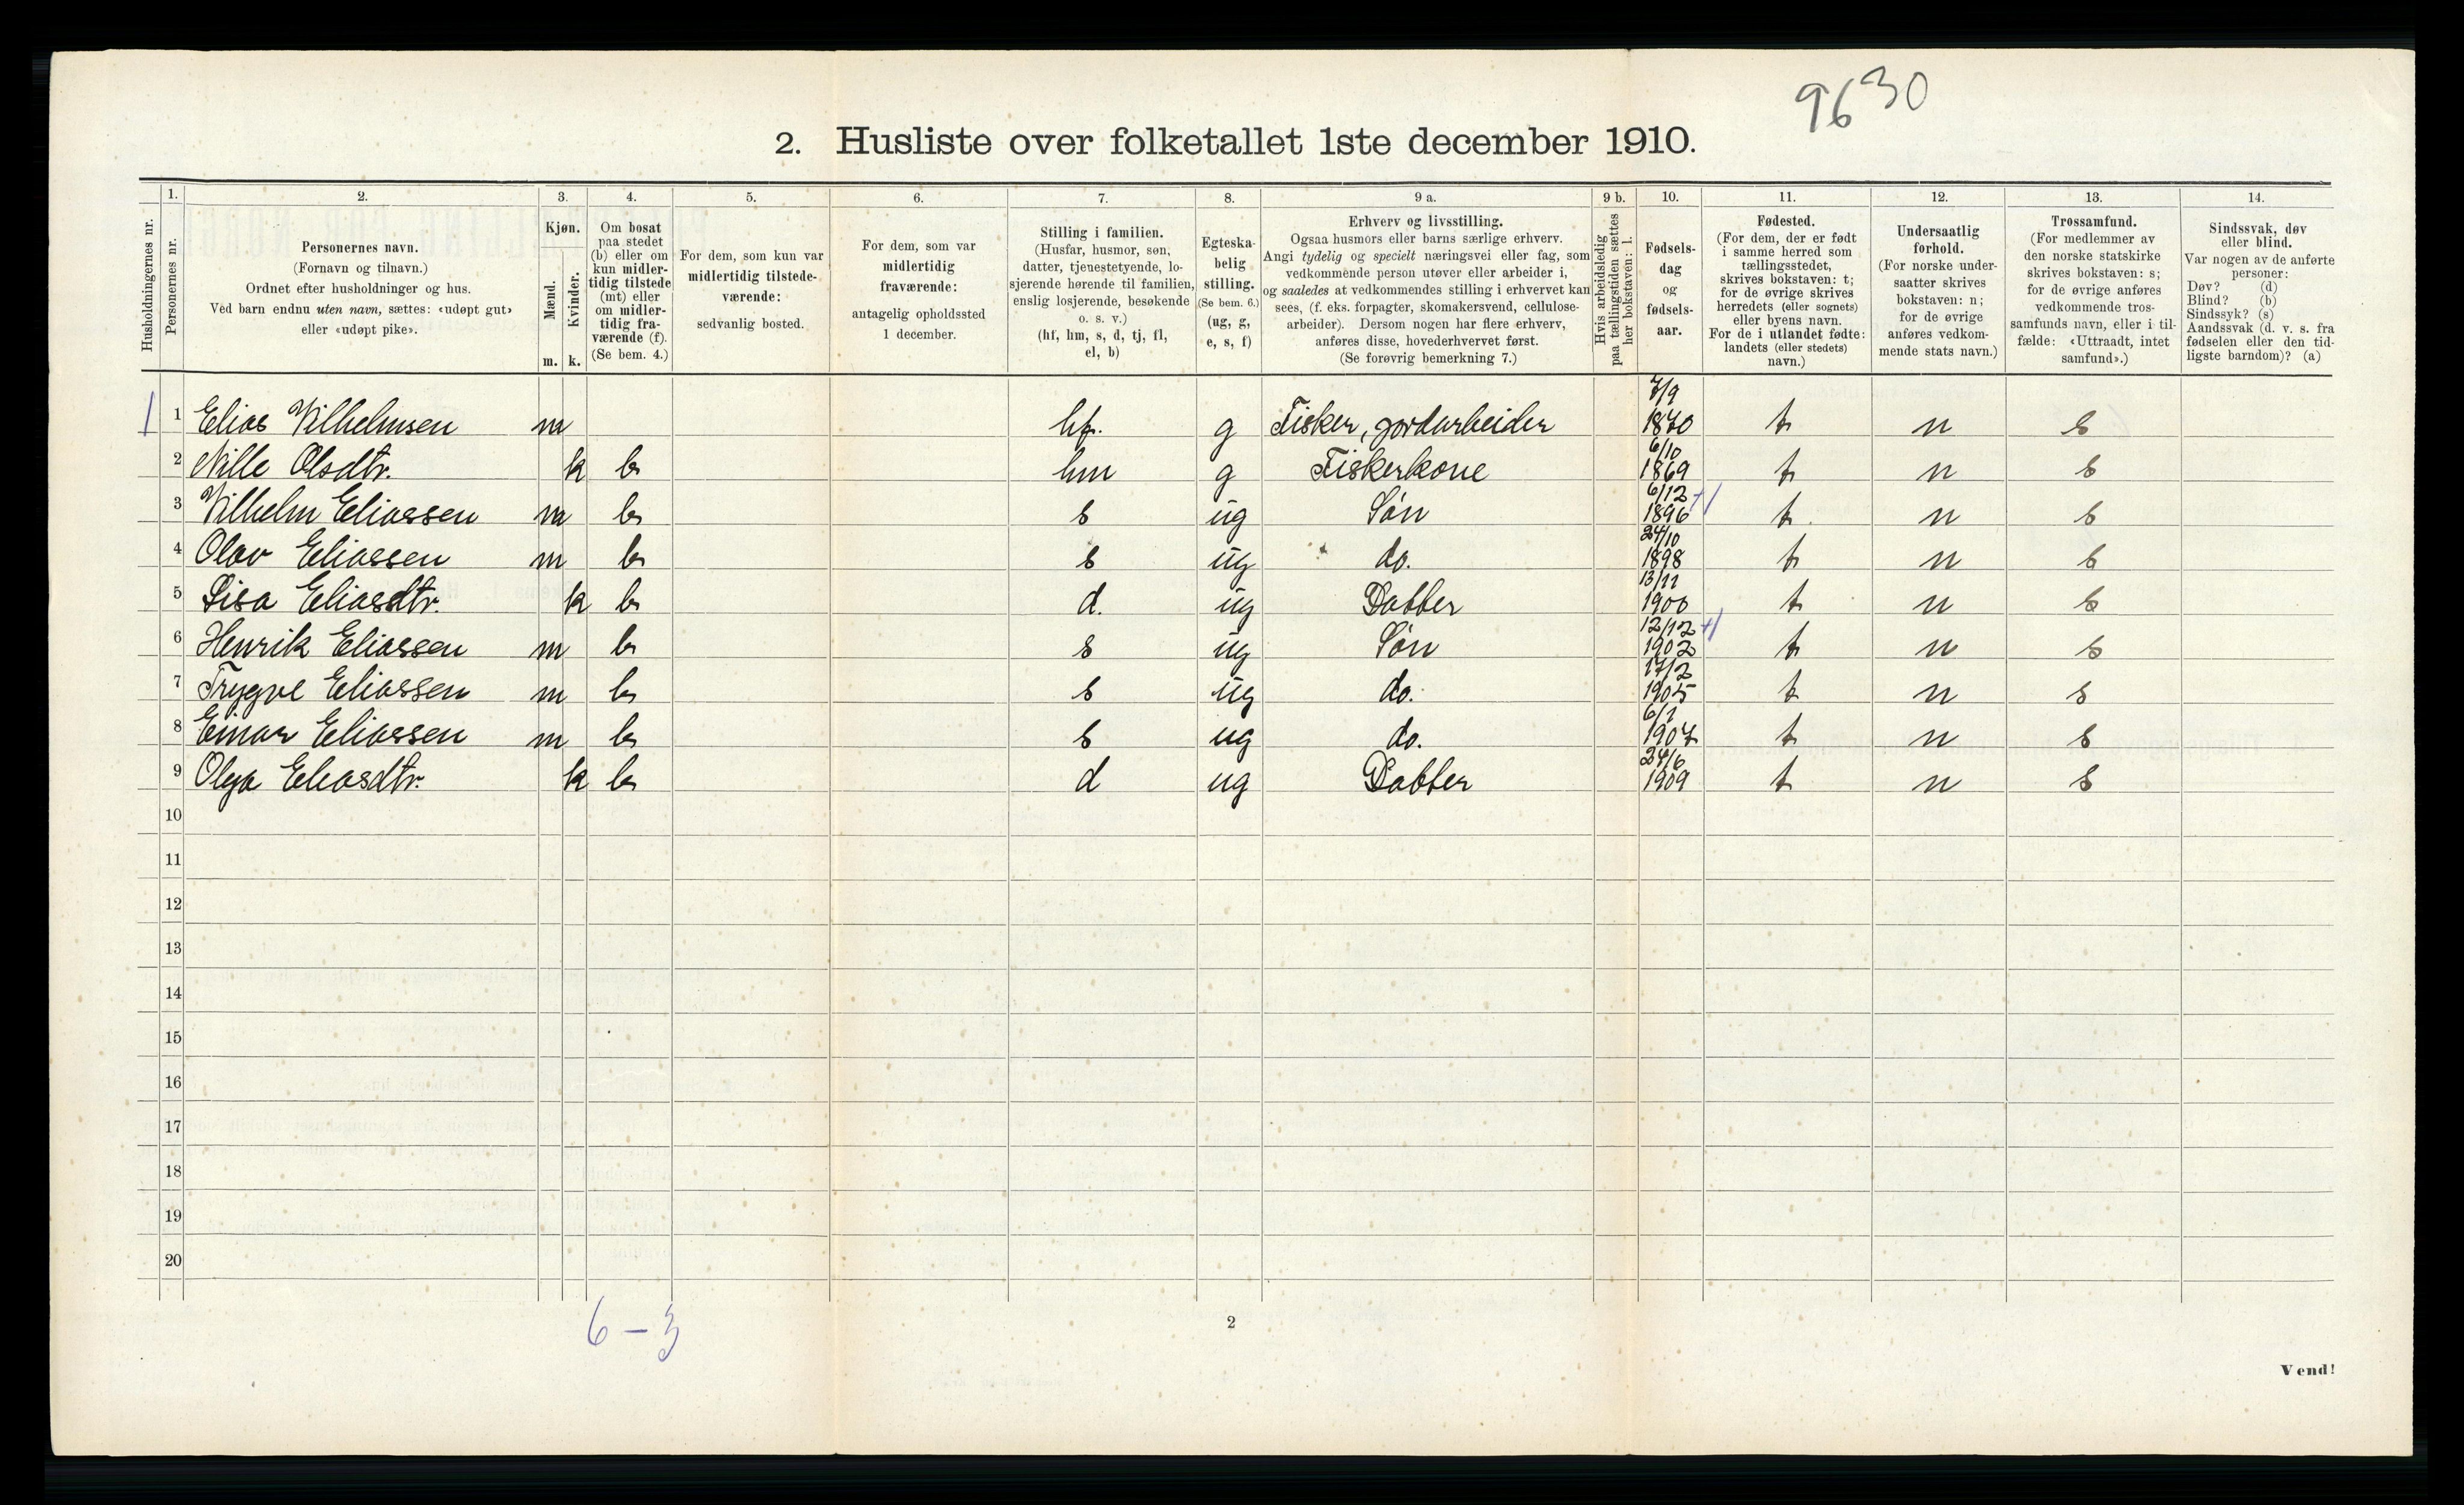 9630
2. Husliste over folketallet 1ste december 1910.
Husholdningernes nr.
1.
Personernes nr.
2.
Personernes navn.
(Fornavn og tilnavn.)
Ordnet efter husholdninger og hus.
Ved barn endnu uten navn, sættes: «udøpt gut»
eller «udøpt pike».
3.
Kjøn.
Mænd.
Kvinder.
m. k.
4.
Om bosat
paa stedet
(b) eller om
kun midler-
tidig tilstede
(mt) eller
om midler-
tidig fra-
værende (f).
(Se bem. 4.)
5.
For dem, som kun var
midlertidig tilstede-
værende:
sedvanlig bosted.
6.
For dem, som var
midlertidig
fraværende:
antagelig opholdssted
1 december.
7.
Stilling i familien.
(Husfar, husmor, søn,
datter, tjenestetyende, lo-
sjerende hørende til familien,
enslig losjerende, besøkende
o. s. v.)
(hf, hm, s, d, tj, fl,
el, b)
8.
Egteska-
belig
stilling.
(Se bem. 6.)
(ug, g,
e, s, f)
9 a.
Erhverv og livsstilling.
Ogsaa husmors eller barns særlige erhverv.
Angi tydelig og specielt næringsvei eller fag, som
vedkommende person utøver eller arbeider i,
og saaledes at vedkommendes stilling i erhvervet kan
sees, (f. eks. forpagter, skomakersvend, cellulose-
arbeider). Dersom nogen har flere erhverv,
anføres disse, hovederhvervet først.
(Se forøvrig bemerkning 7.)
9 b.
Hvis arbeidsledig
paa tællingstiden sættes
her bokstaven: l.
10.
Fødsels-
dag
og
fødsels-
aar.
11.
Fødested.
(For dem, der er født
i samme herred som
tællingsstedet,
skrives bokstaven: t;
for de øvrige skrives
herredets (eller sognets)
eller byens navn.
For de i utlandet fødte:
landets (eller stedets)
navn.)
12.
Undersaatlig
forhold.
(For norske under-
saatter skrives
bokstaven: n;
for de øvrige
anføres vedkom-
mende stats navn.)
13.
Trossamfund.
(For medlemmer av
den norske statskirke
skrives bokstaven: s;
for de øvrige anføres
vedkommende tros-
samfunds navn, eller i til-
fælde: «Uttraadt, intet
samfund».)
14.
Sindssvak, døv
eller blind.
Var nogen av de anførte
personer:
Døv? (d)
Blind? (b)
Sindssyk? (s)
Aandssvak (d. v. s. fra
fødselen eller den tid-
ligste barndom)? (a)
1 1 Elias Vilhelmsen m hf. g Fisker, jordarbeider 7/9 1870 t n s
2 Nille Olsdtr. k b hm g Fiskerkone 6/10 1869 t n s
3 Vilhelm Eliassen m b s ug Søn 6/12 1896 t n s
4 Olav Eliassen m b s ug do. 24/10 1898 t n s
5 Lisa Eliasdtr. k b d. ug Datter 13/11 1900 t n s
6 Henrik Eliassen m b s ug Søn 12/12 1902 t n s
7 Trygve Eliassen m b s ug do. 17/2 1905 t n s
8 Einar Eliassen m b s ug do. 6/1 1907 t n s
9 Olga Eliasdtr. k b d ug Datter 24/6 1909 t n s
10
11
12
13
14
15
16
17
18
19
20
6 – 3
2
Vend!